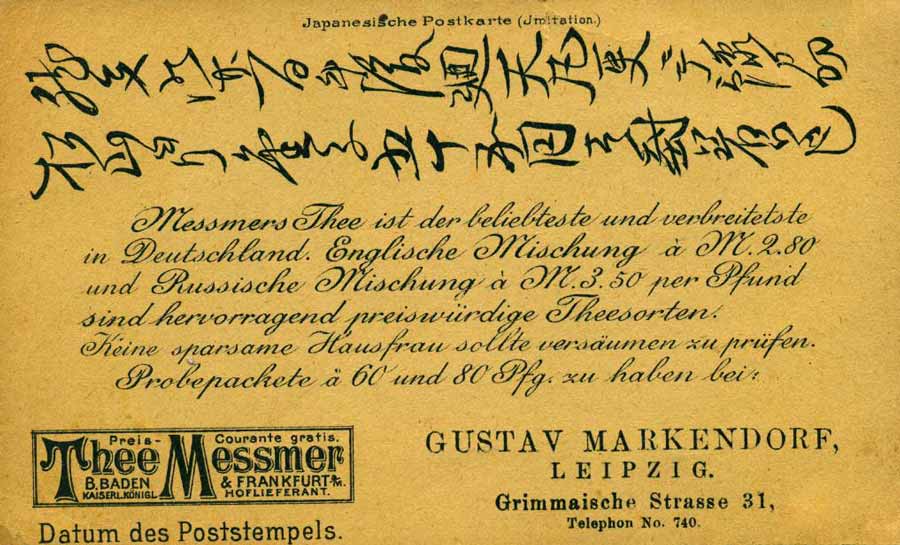 Japanesische Postkarte (Jmitation.)
Messmers Thee ist der beliebteste und verbreitetste
in Deutschland. Englische Mischung à M. 2.80
und Russische Mischung à M. 3.50 per Pfund
sind hervorragend preiswürdige Theesorten.
Keine sparsame Hausfrau sollte versäumen zu prüfen.
Probepackete à 60 und 80 Pfg. zu haben bei:
Preis- Courante gratis.
Thee Messmer
B. BADEN & FRANKFURT a/M.
KAISERL. KÖNIGL. HOFLIEFERANT.
Datum des Poststempels.
GUSTAV MARKENDORF,
LEIPZIG.
Grimmaische Strasse 31,
Telephon No. 740.